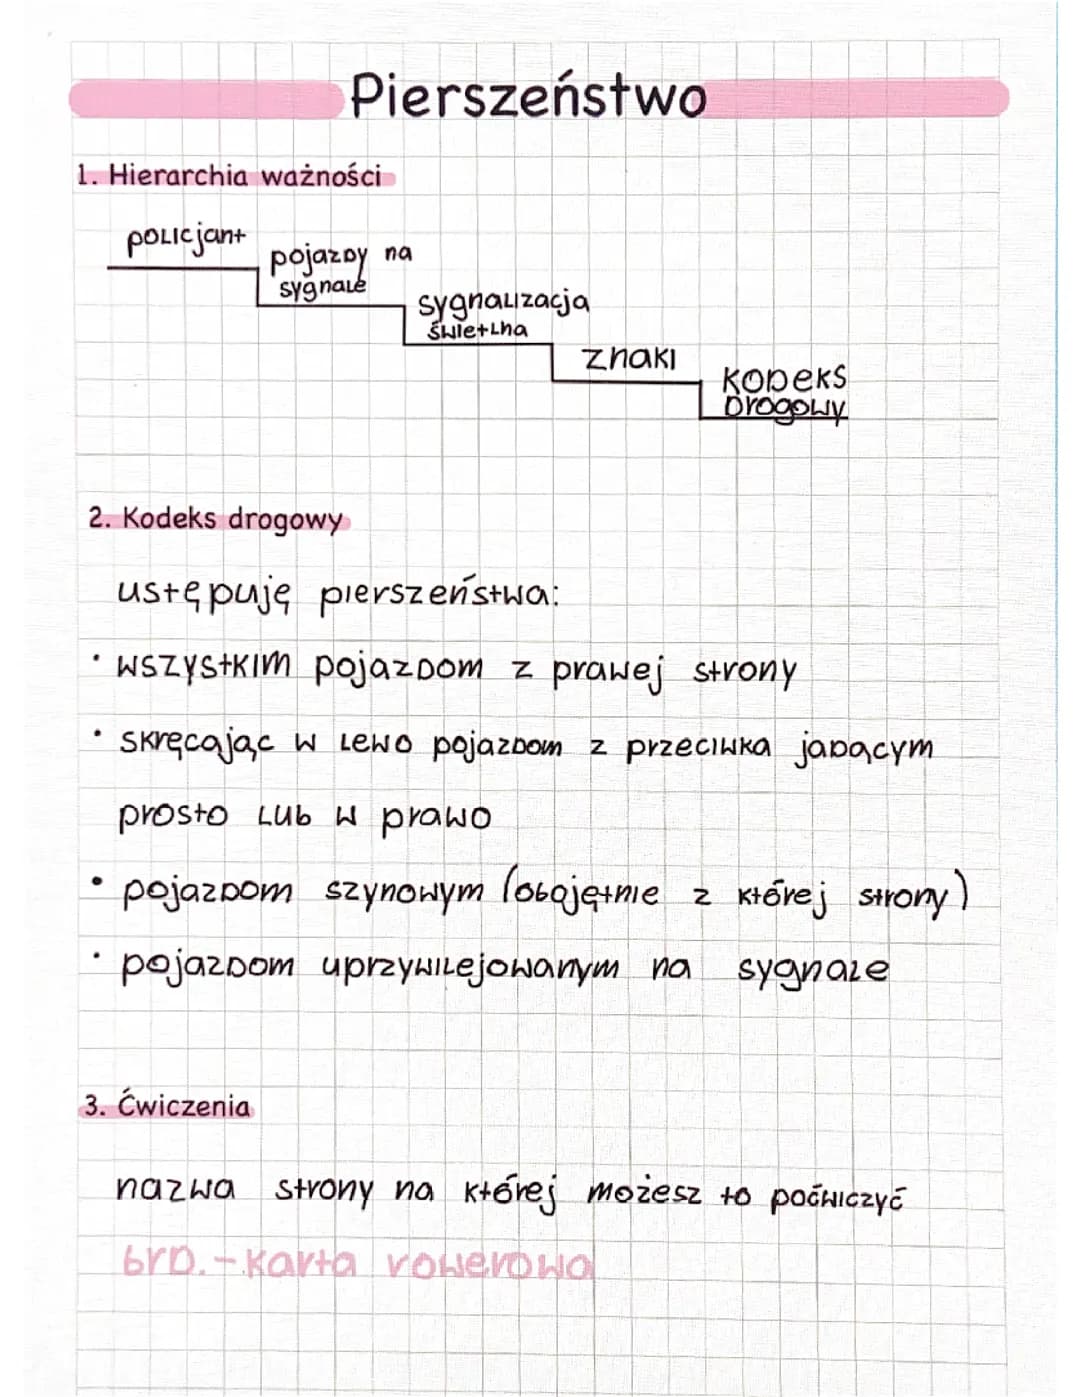 Pierszeństwo
1. Hierarchia ważności
policjant
pojazdy na
sygnale
sygnalizacja
świetlna
znaki
kodeks
drogowy
2. Kodeks drogowy
ustępuję pierszeństwa:
• wszystkim pojazdom z prawej strony
• skręcając w lewo pojazdom z przeciwka jadącym
prosto lub w prawo
• pojazdom szynowym (obojętnie z której strony)
• pojazdom uprzywilejowanym na sygnale
3. Ćwiczenia
nazwa strony na której możesz to poćwiczyć
brd.-karta rowerowa